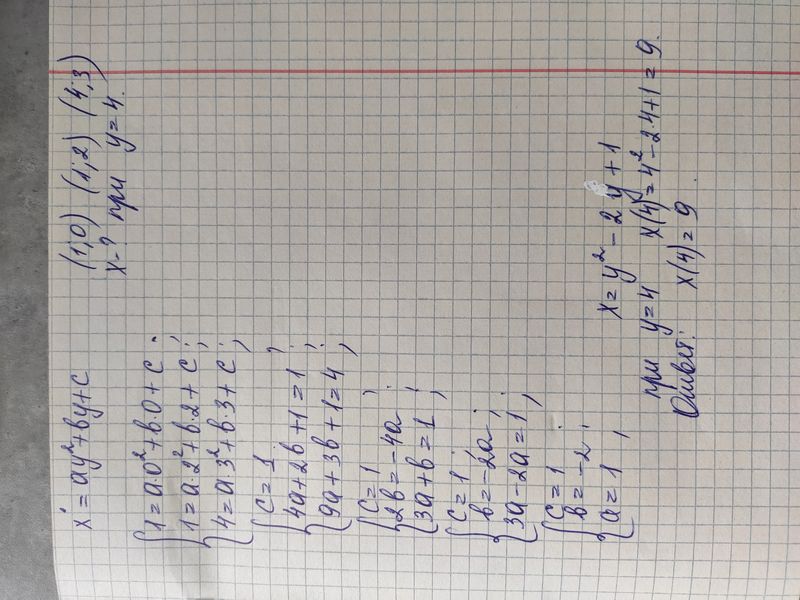 x = ay² + by + c (1;0) (1;2) (4;3)
x-? при y=4.
{1 = a·0² + b·0 + c;
{1 = a·2² + b·2 + c;
{4 = a·3² + b·3 + c;
{c = 1
{4a + 2b + 1 = 1;
{9a + 3b + 1 = 4;
{c = 1
{2b = -4a;
{3a + b = 1;
{c = 1
{b = -2a;
{3a - 2a = 1;
{c = 1
{b = -2;
{a = 1,
x = y² - 2y + 1
при y=4 x(4) = 4² - 2·4 + 1 = 9.
Ответ: x(4) = 9.